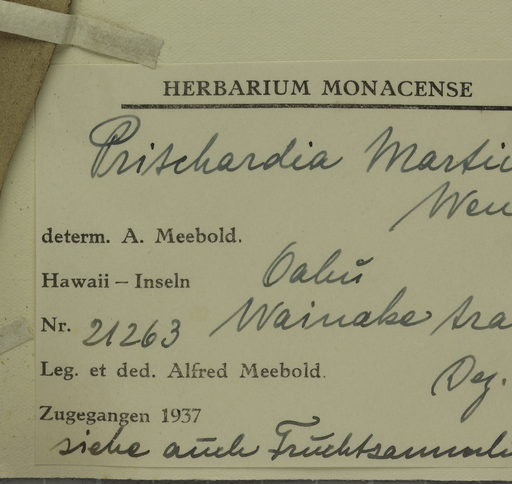 HERBARIUM MONACENSE
Pritchardia Martii
Wen
determ. A. Meebold.
Hawaii – Inseln Oahŭ
Nr. 21263 Wainake tra
Leg. et ded. Alfred Meebold.
Dez.
Zugegangen 1937
siehe aŭch Frŭchtsamml